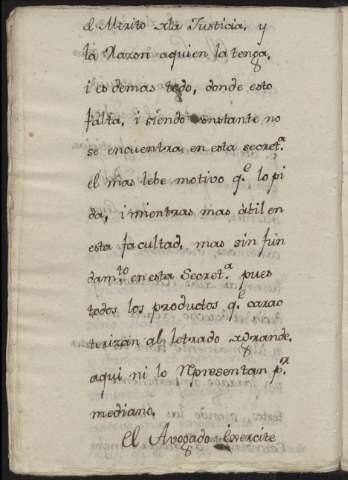 el Mèrito ala Justicia, y
la Razon aquien la tenga,
i es demas todo, donde esto
falta, i siendo constante no
se encuentra en esta secret.ª
el mas lebe motivo q.e lo pi
da, i mientras mas abil en
esta facultad, mas sin fun
dam.to en esta Secret.ª pues
todos los productos q.e carac
terizan al letrado grande,
aqui ni lo representan p.r
mediano.
El Avogado Exercite